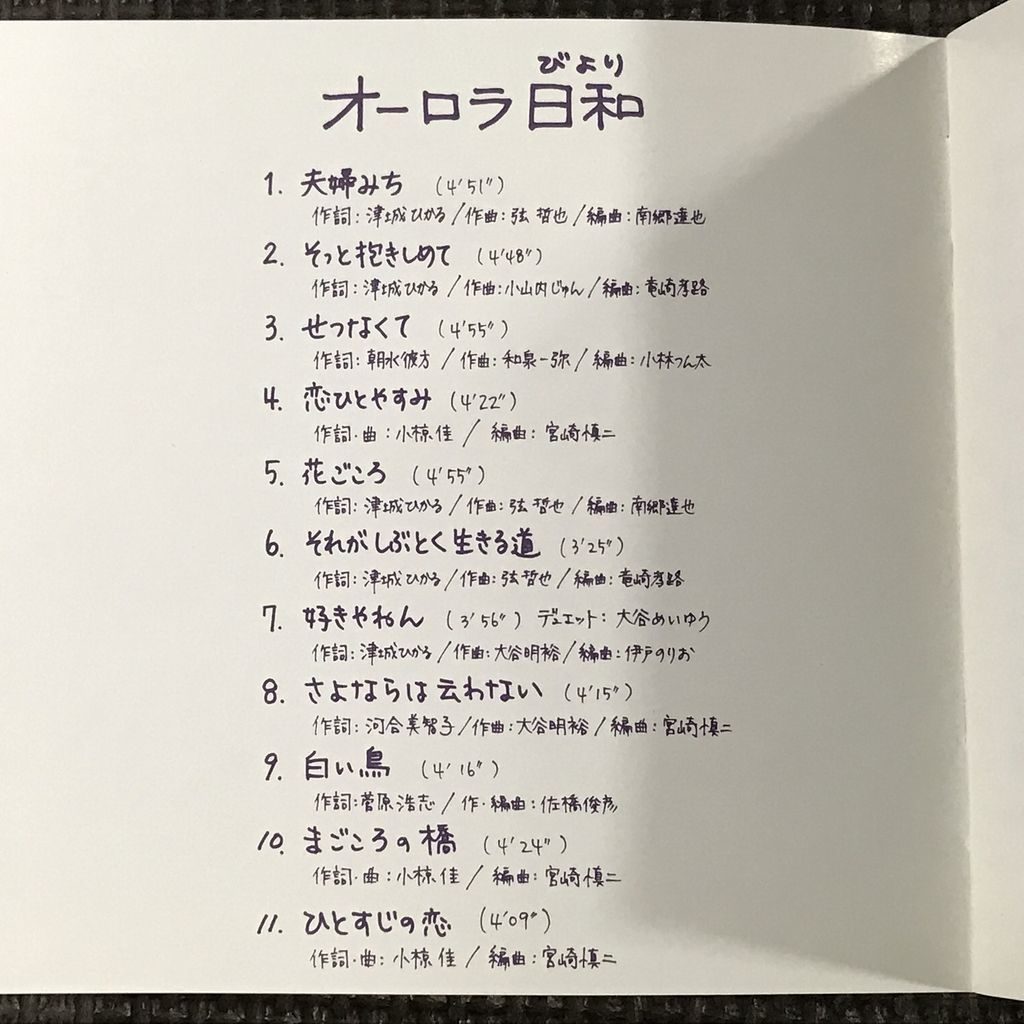 びより
オーロラ日和
1. 夫婦みち (4'51")
作詞:津城ひかる/作曲:弦 哲也/編曲:南郷達也
2. そっと抱きしめて (4'48")
作詞:津城ひかる/作曲:小山内じゅん/編曲:竜崎孝路
3. せつなくて (4'55")
作詞:朝水彼方/作曲:和泉一弥/編曲:小林つん太
4. 恋ひとやすみ (4'22")
作詞・曲:小椋佳/編曲:宮崎慎二
5. 花ごころ (4'55")
作詞:津城ひかる/作曲:弦 哲也/編曲:南郷達也
6. それがしぶとく生きる道 (3'25")
作詞:津城ひかる/作曲:弦哲也/編曲:竜崎孝路
7. 好きやねん (3'56") デュエット:大谷めいゆう
作詞:津城ひかる/作曲:大谷明裕/編曲:伊戸のりお
8. さよならは云わない (4'15")
作詞:河合美智子/作曲:大谷明裕/編曲:宮崎慎二
9. 白い鳥 (4'16")
作詞:菅原浩志/作・編曲:佐橋俊彦
10. まごころの橋 (4'24")
作詞・曲:小椋佳/編曲:宮崎慎二
11. ひとすじの恋 (4'09")
作詞・曲:小椋佳/編曲:宮崎慎二